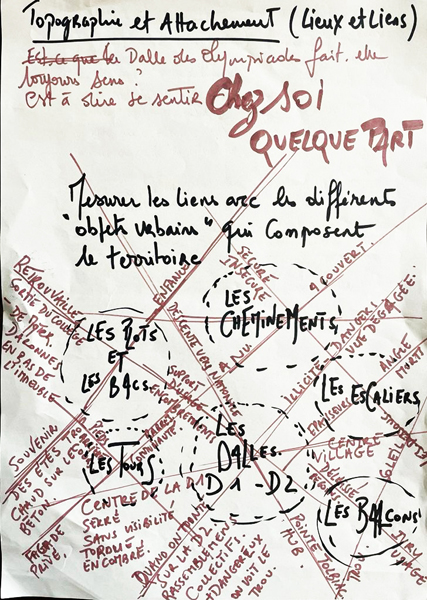 Topographie et Attachement (Lieux et Liens)
Est-ce que la Dalle des Olympiades fait-elle
toujours sens ?
C'est à dire se sentir Chez soi
QUELQUE PART
Mesurer les liens avec les différents
"objets urbains" qui composent
le territoire
ENFANCE
SÉCURITÉ
À COUVERT.
RETROUVAILLE
SORTIE DU COLLÈGE
EN BAS DE
L'IMMEUBLE
LES POTS
ET
LES BACS.
LES
CHEMINEMENTS.
À NU.
SUPPORT
DANGERS
VUE DÉGAGÉE.
ANGLE
MORT
LES ESCALIERS
ILLICITE
LES
DALLES.
D1-D2
LES TOURS
CENTRE
VILLAGE
SOUVENIR
DES ÉTÉS TROP
CHAUD SUR LE
BÉTON.
CENTRE DE LA D1
SERRÉ
SANS VISIBILITÉ
TORDU
ENCOMBRÉ.
FAÇADE
PAVÉ.
QUAND ON MONTE
SUR LA D2
RASSEMBLEMENT
COLLECTIFS.
DANGEREUX
ON VOIT LE
TROU.
POINTE
HUB.
LES BALCONS
SOLEIL
TROP